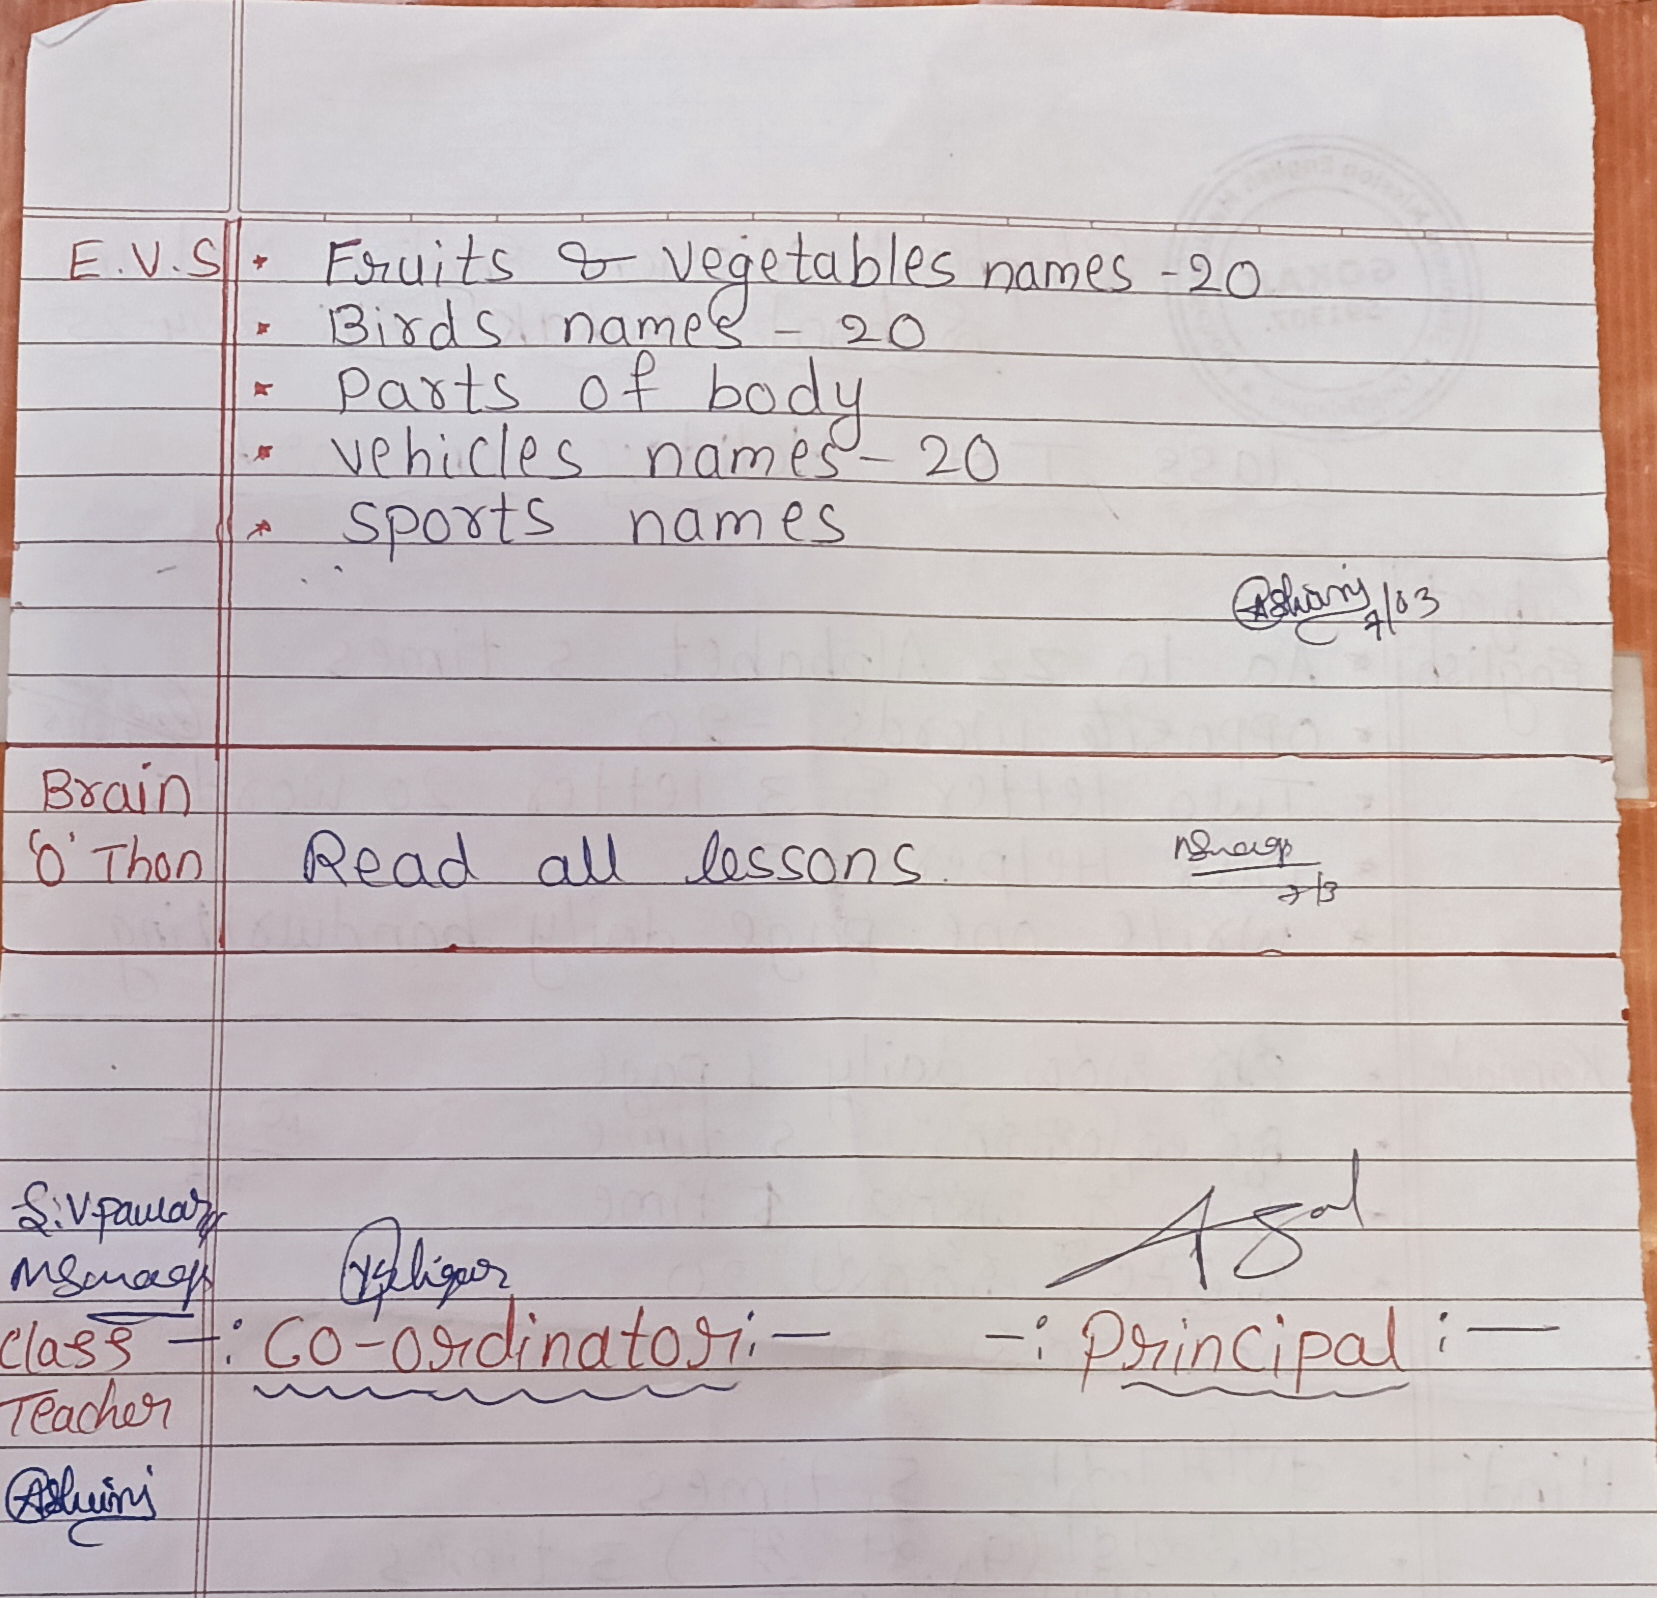 E.V.S * Fruits & vegetables names - 20
* Birds names - 20
* Parts of body
* vehicles names - 20
* sports names
7/03
Brain
'O' Thon Read all lessons.
7/3
S.V.pawar
Class -: Co-ordinator :- -: Principal :-
Teacher